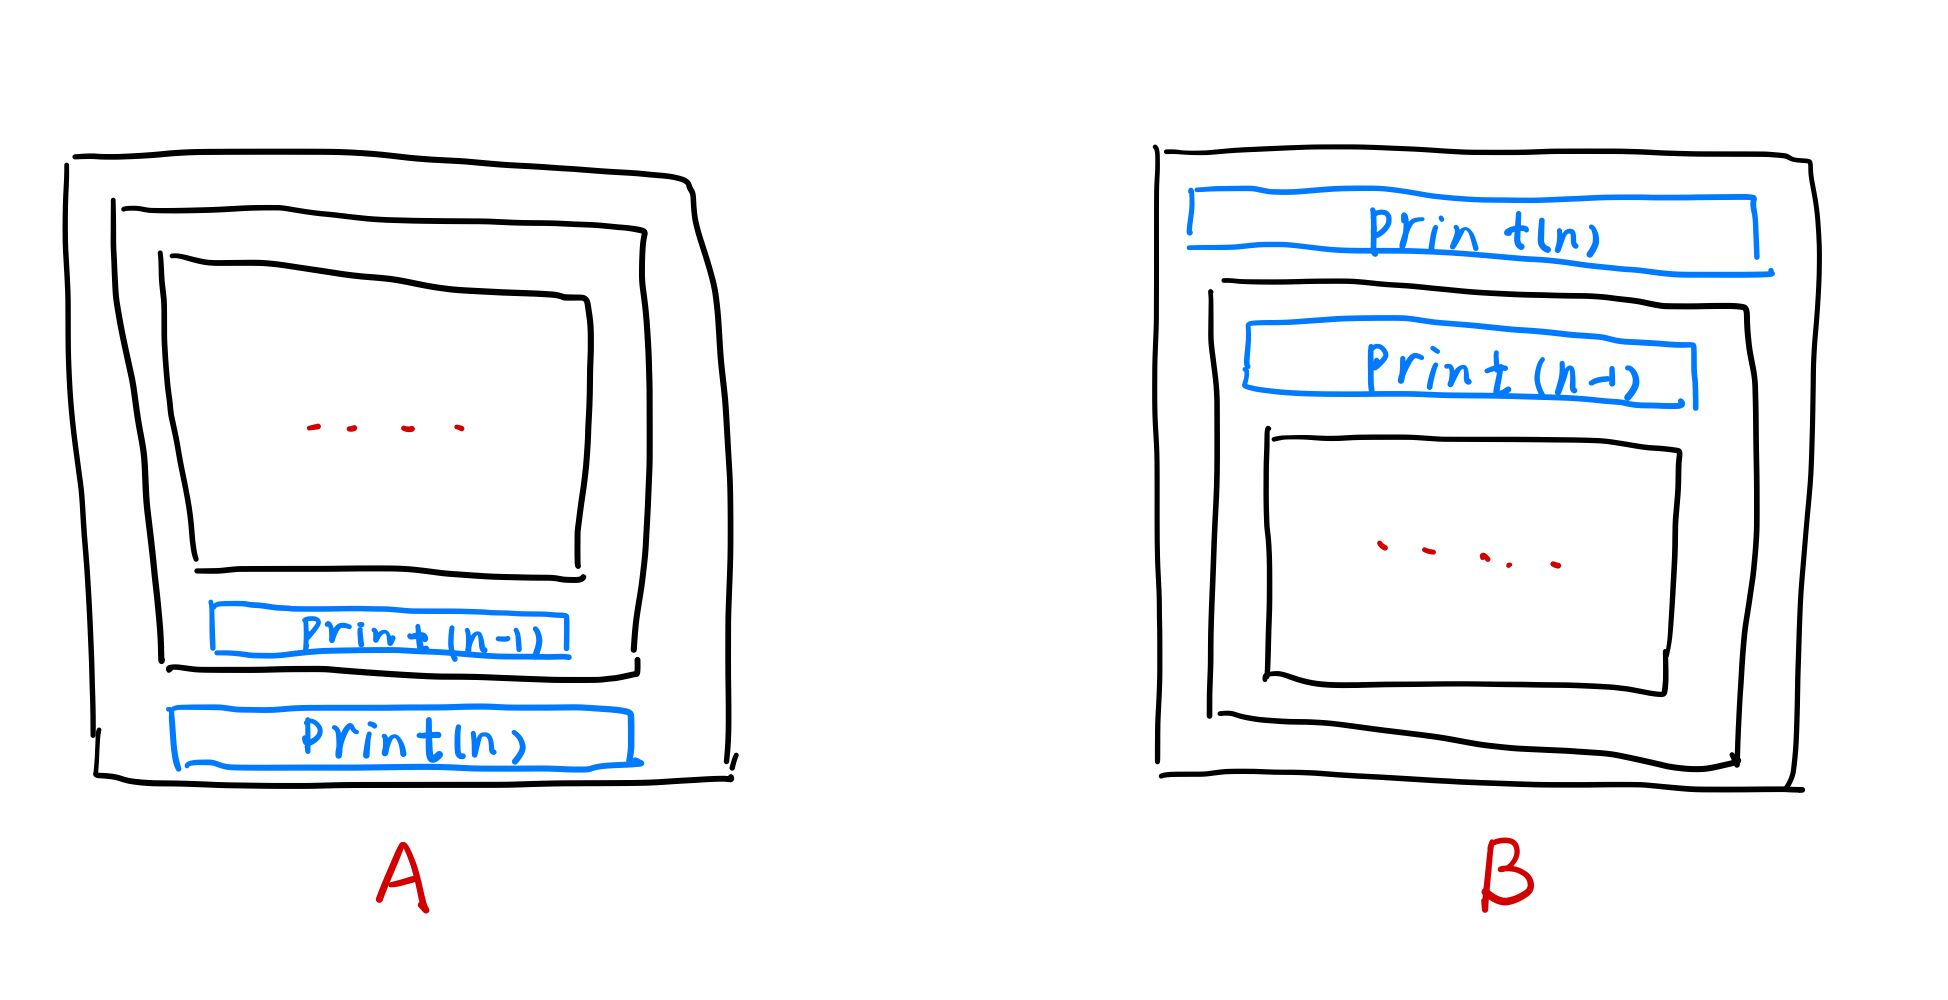 print(n-1)
print(n)
A
print(n)
print(n-1)
B